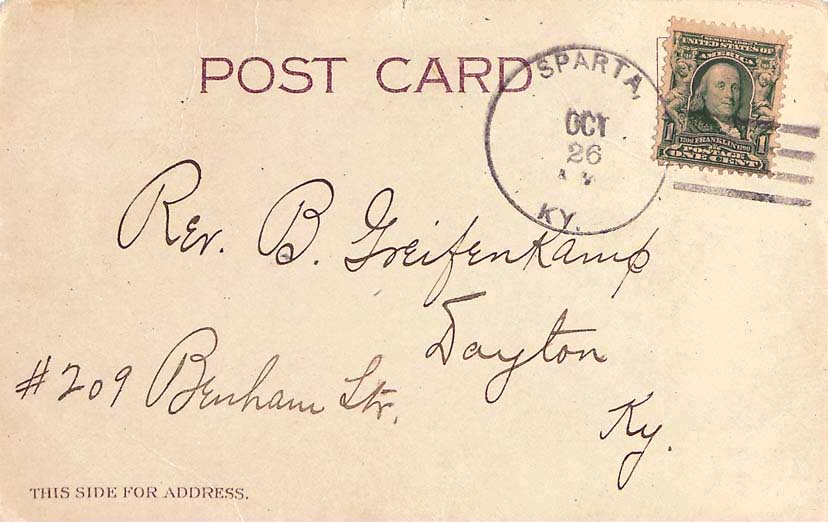 POST CARD
SPARTA,
OCT
26
KY.
SERIES 1902
UNITED STATES OF
AMERICA
1706 FRANKLIN 1790
POSTAGE
1 ONE CENT 1
Rev. B. Greifenkamp
Dayton
Ky.
#209 Benham Str.
THIS SIDE FOR ADDRESS.